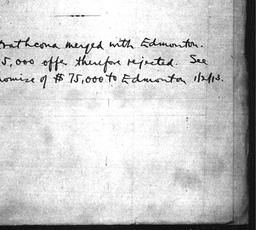 rathcona merged with Edmonton.
5,000 offer therefore rejected. See
romise of $75,000 to Edmonton 1/2/13.